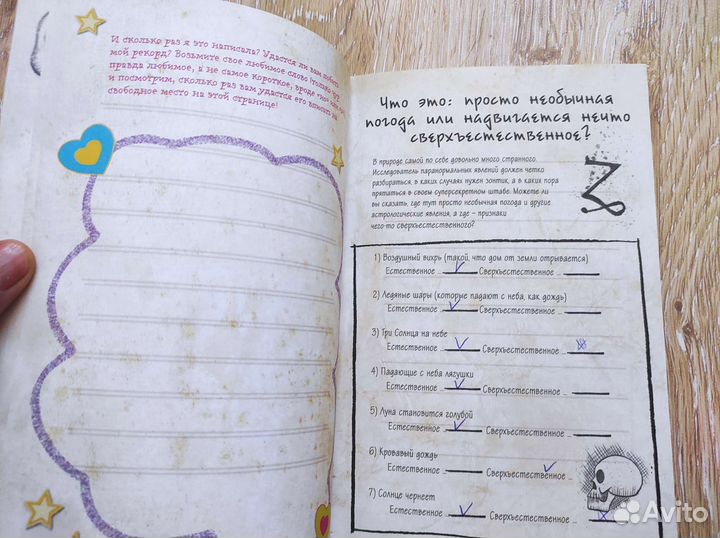 И сколько раз я это написала? Удастся ли вам побить
мой рекорд? Возьмите свое любимое слово (только
правда любимое, а не самое короткое, вроде
и посмотрим, сколько раз вам удастся его вписать на
свободное место на этой странице!
Что это: просто необычная
погода или надвигается нечто
сверхъестественное?
В природе самой по себе довольно много странного.
Исследователь паранормальных явлений должен четко
разбираться, в каких случаях нужен зонтик, а в каких пора
прятаться в своем суперсекретном штабе. Можете ли
вы сказать, где тут просто необычная погода и другие
астрологические явления, а где – признаки
чего-то сверхъестественного?
1) Воздушный вихрь (такой, что дом от земли отрывается)
Естественное Сверхъестественное
2) Ледяные шары (которые падают с неба, как дождь)
Естественное Сверхъестественное
3) Три Солнца на небе
Естественное Сверхъестественное
4) Падающие с неба лягушки
Естественное Сверхъестественное
5) Луна становится голубой
Естественное Сверхъестественное
6) Кровавый дождь
Естественное Сверхъестественное
7) Солнце чернеет
Естественное Сверхъестественное
Avito